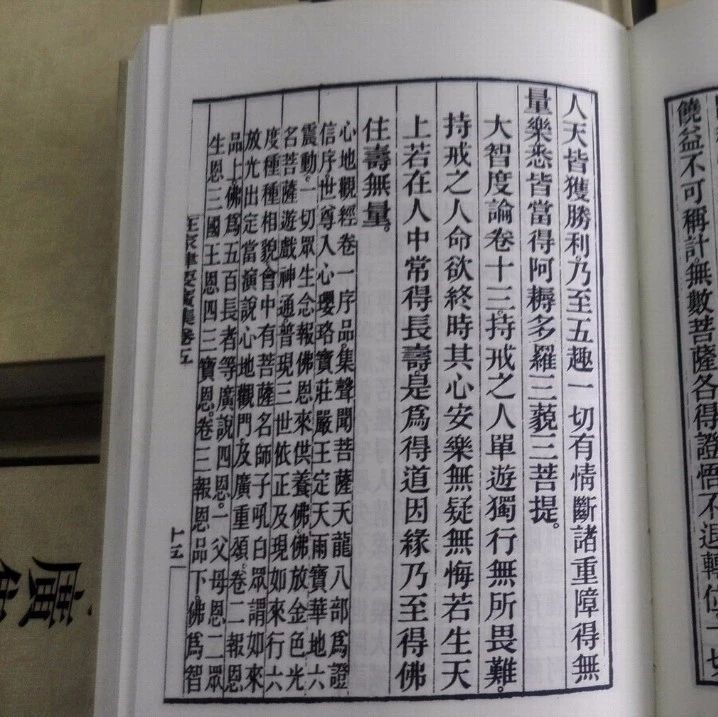 饒益不可稱計無數菩薩各得證悟不退轉位一切
人天皆獲勝利乃至五趣一切有情斷諸重障得無
量樂悉皆當得阿耨多羅三藐三菩提。
大智度論卷十三。持戒之人單遊獨行無所畏難。
持戒之人命欲終時其心安樂無疑無悔若生天
上若在人中常得長壽。是爲得道因緣乃至得佛
住壽無量。
心地觀經卷一序品。集聲聞菩薩天龍八部爲證
信序。世尊入心瓔珞寶莊嚴王定天雨寶華地六
震動。一切眾生念報佛恩來供養佛。佛放金色光
名菩薩遊戲神通普現三世依正及現如來行六
度種種相貌。會中有菩薩名師子吼白眾謂如來
放光出定當演說心地觀門。及廣重頌。卷二報恩
品上佛爲五百長者等廣說四恩。一父母恩二眾
生恩三國王恩四三寶恩。卷三報恩品下。佛爲智
在家律要廣集卷五
廣